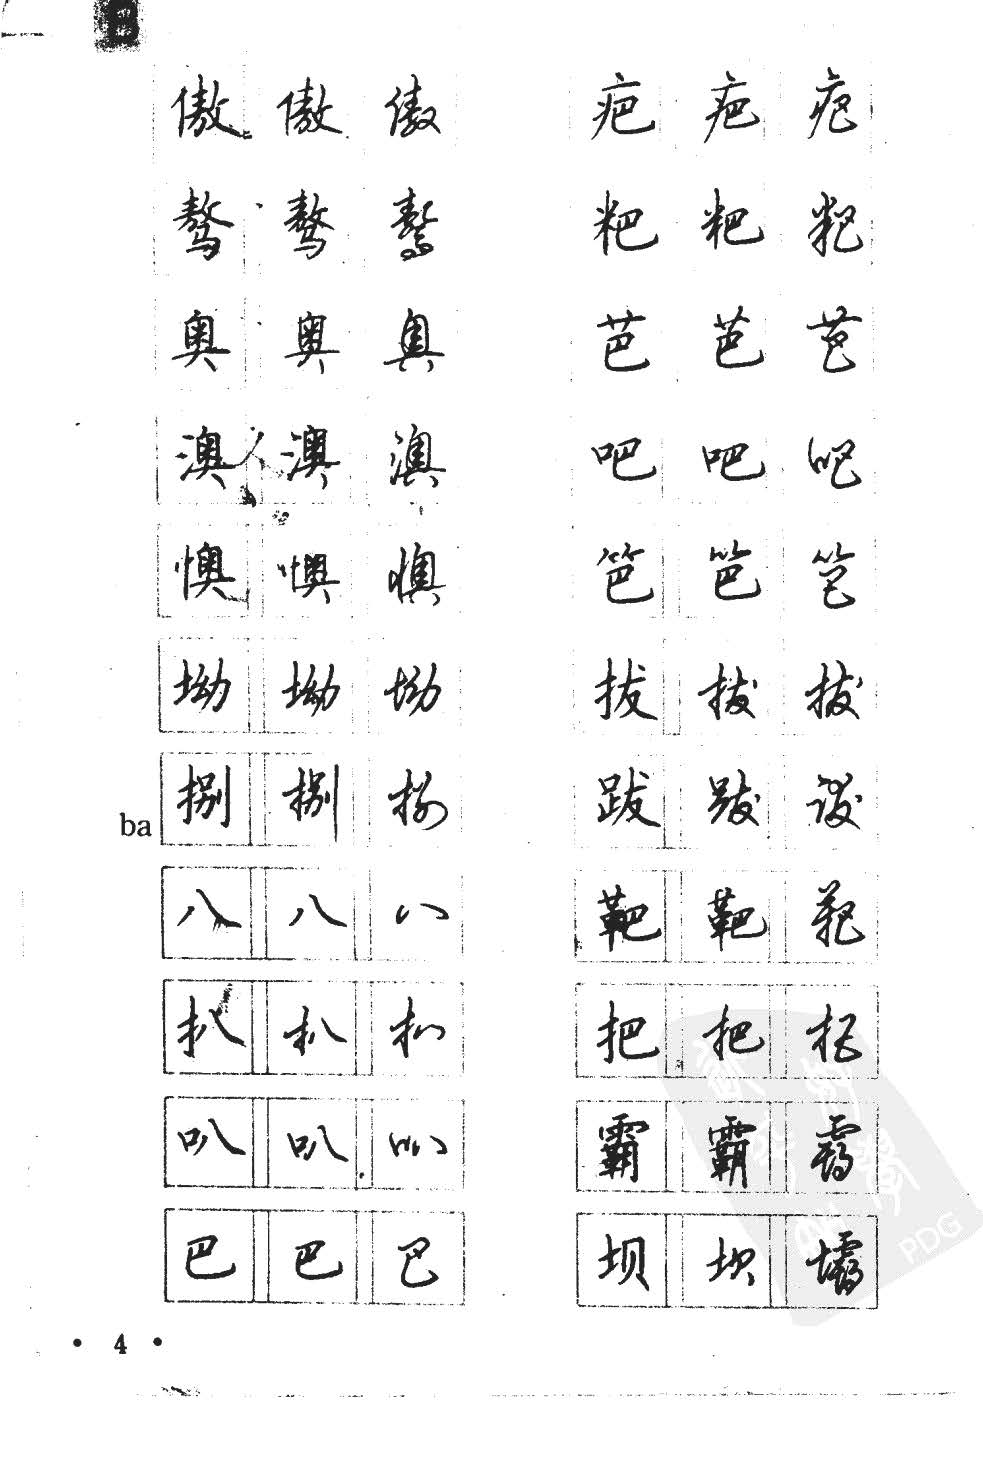 B
傲 傲 傲
骜 骜 骜
奥 奥 奥
澳 澳 澳
懊 懊 懊
坳 坳 坳
ba
捌 捌 捌
八 八 八
扒 扒 扒
叭 叭 叭
巴 巴 巴
疤 疤 疤
粑 粑 粑
芭 芭 芭
吧 吧 吧
笆 笆 笆
拔 拔 拔
跋 跋 跋
靶 靶 靶
把 把 把
霸 霸 霸
坝 坝 壩
• 4 •
PDG